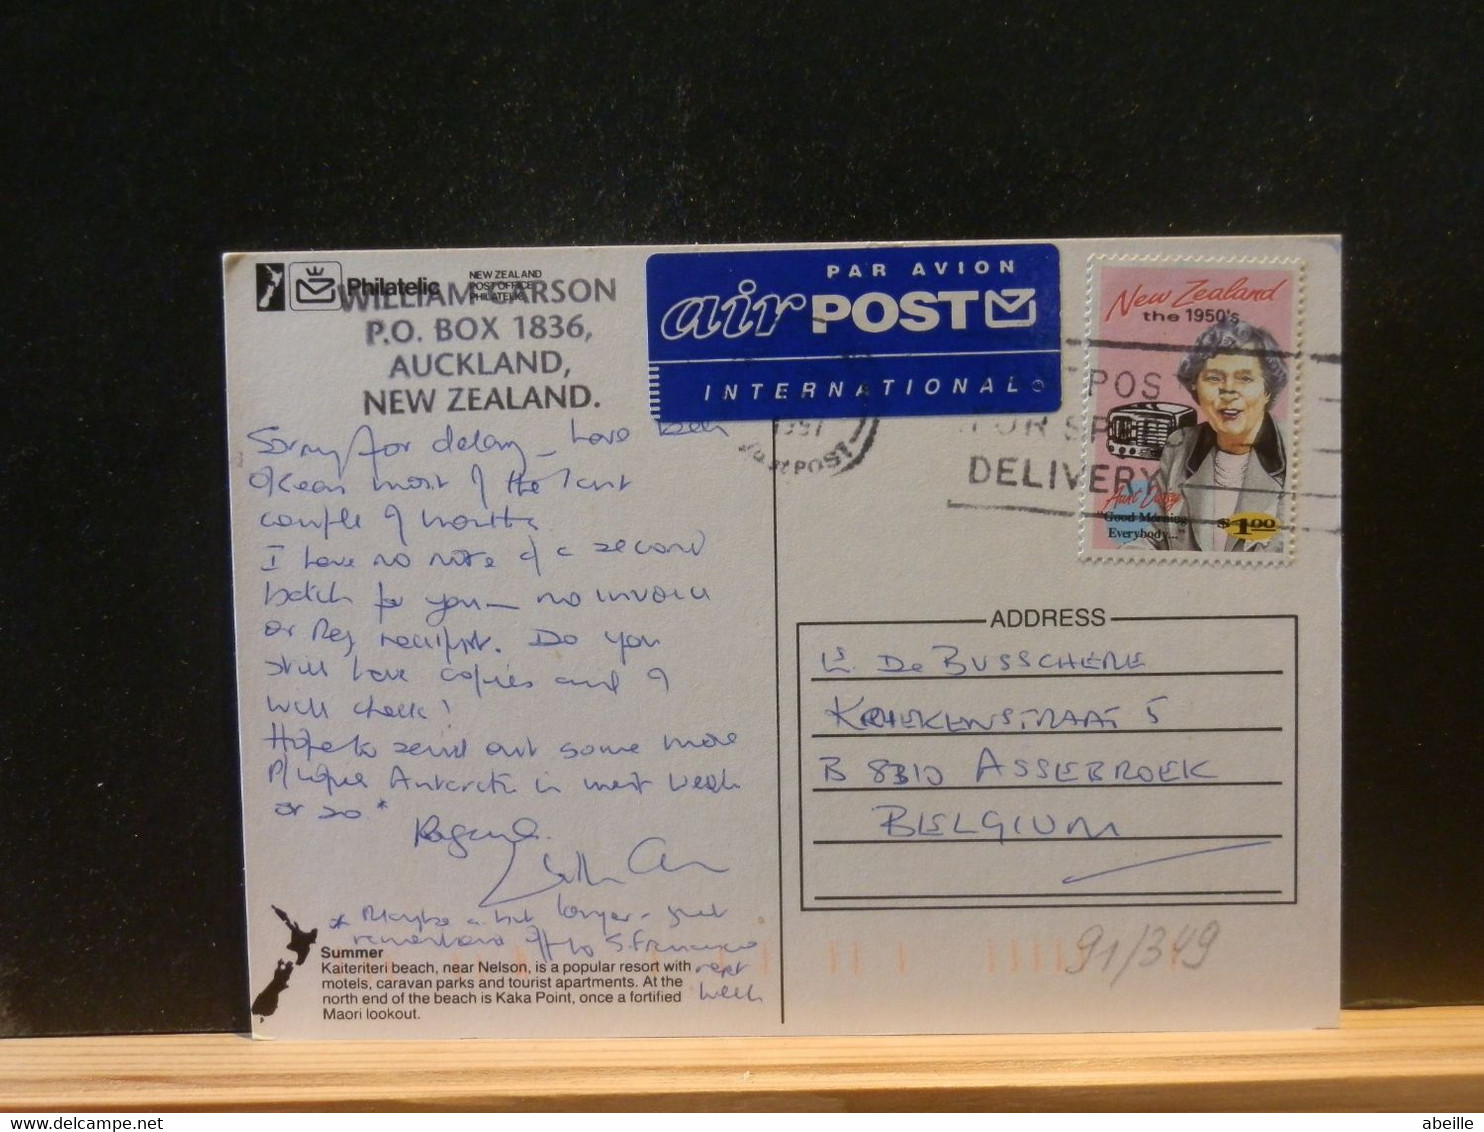 Philatelic
NEW ZEALAND
POST OFFICE
PHILATELIC
WILLIAM CARSON
P.O. BOX 1836,
AUCKLAND,
NEW ZEALAND.
PAR AVION
air POST
INTERNATIONAL
New Zealand
the 1950's
Aunt Daisy
"Good Morning
Everybody..."
$1.00
POS
FOR SPE
DELIVERY
1997
Sorry for delay - have been
O'seas most of the last
couple of months
I have no note of a second
batch for you - no invoice
or Reg receipt. Do you
still have copies and I
will check!
Hope to send out some more
Antarctic in next week
or so *
Regards.
* Maybe a bit longer - just
remembered off to S. Francisco
next
week
Summer
Kaiteriteri beach, near Nelson, is a popular resort with
motels, caravan parks and tourist apartments. At the
north end of the beach is Kaka Point, once a fortified
Maori lookout.
ADDRESS
De BUSSCHERE
KRIEKENSTRAAT 5
B 8310 ASSEBROEK
BELGIUM
91/349
abeille